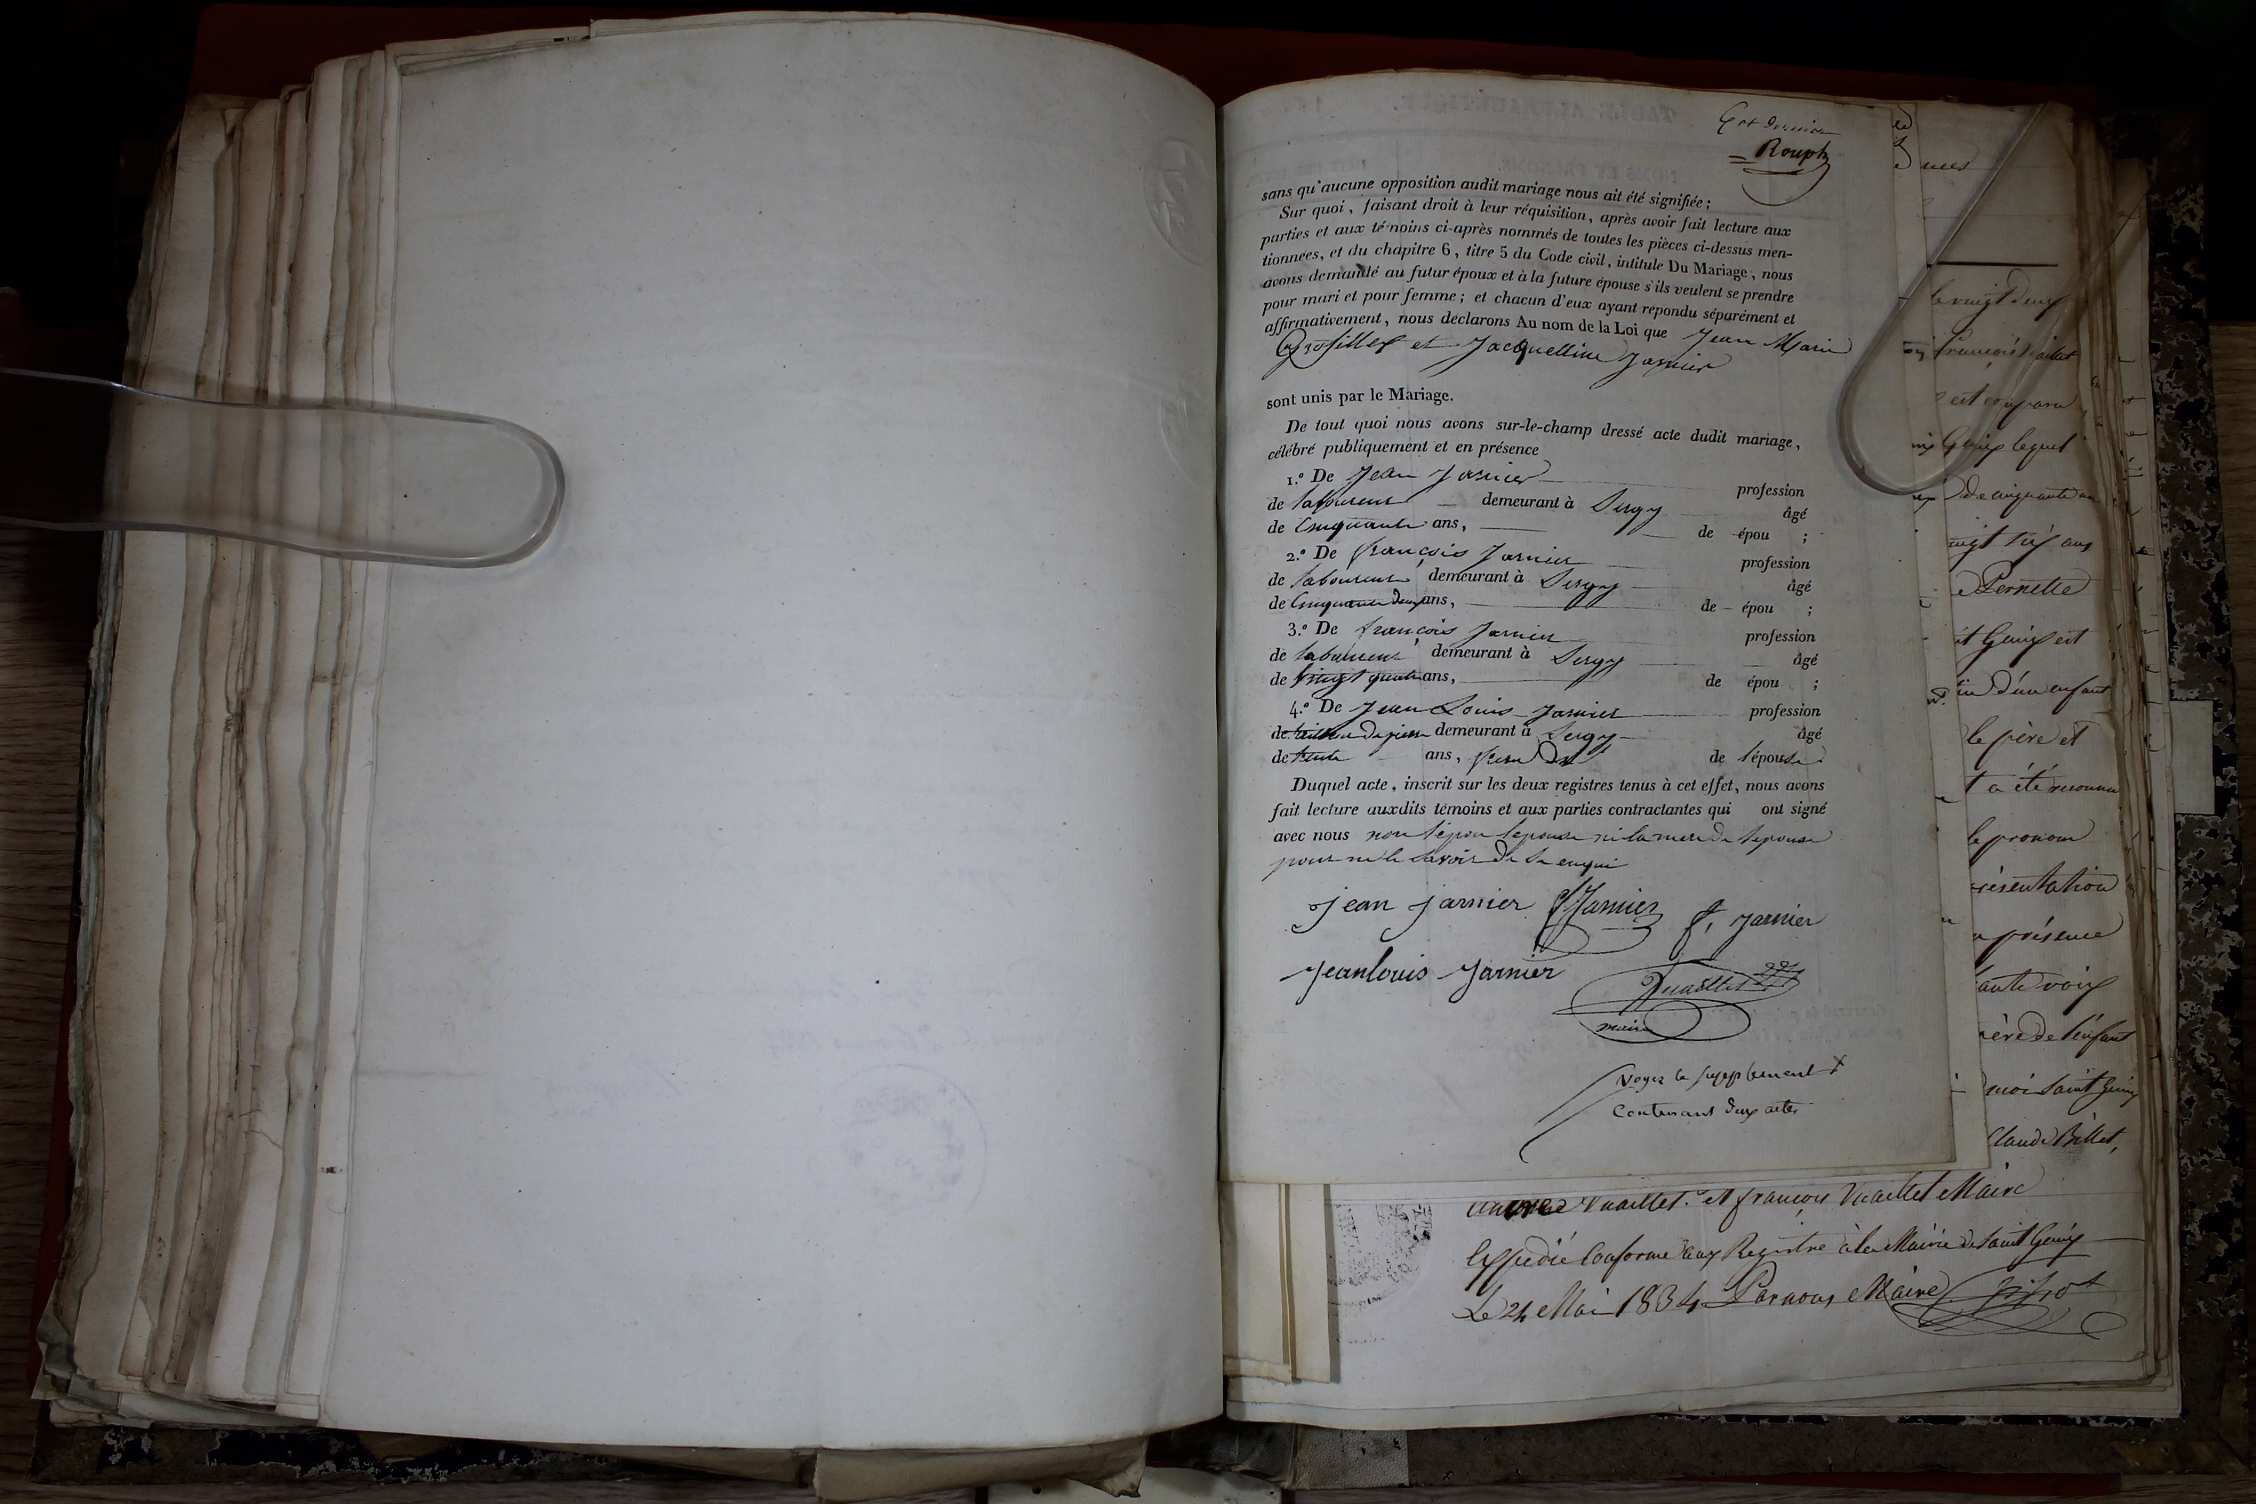 dernier
Rouph
sans qu'aucune opposition audit mariage nous ait été signifiée ;
Sur quoi, faisant droit à leur réquisition, après avoir fait lecture aux
parties et aux témoins ci-après nommés de toutes les pièces ci-dessus men-
tionnées, et du chapitre 6, titre 5 du Code civil, intitulé Du Mariage, nous
avons demandé au futur époux et à la future épouse s'ils veulent se prendre
pour mari et pour femme ; et chacun d'eux ayant repondu séparément et
affirmativement, nous déclarons Au nom de la Loi que Jean Marie
Grosfillex et Jacquelline Jarnier
sont unis par le Mariage.
De tout quoi nous avons sur-le-champ dressé acte dudit mariage,
célébré publiquement et en présence
1.º De Jean Jarnier profession
de laboureur demeurant à Sergy âgé
de Cinquante ans, de épou ;
2.º De françois Jarnier profession
de laboureur demeurant à Sergy âgé
de Cinquante deux ans, de épou ;
3.º De françois Jarnier profession
de laboureur demeurant à Sergy âgé
de vingt quatre ans, de épou ;
4.º De Jean Louis Jarnier profession
de tailleur de pierre demeurant à Sergy âgé
de trente ans, de l'épouse
Duquel acte, inscrit sur les deux registres tenus à cet effet, nous avons
fait lecture auxdits témoins et aux parties contractantes qui ont signé
avec nous non l'épou l'epouse ni la mere de l'epouse
pour ne le savoir de ce enquis
Jean Jarnier fJarnier f. Jarnier
Jeanlouis Jarnier
Vuaillet
maire
voyez le supplement
Contenant deux actes
le vingt deux
françois
est comparu
Genix lequel
de cinquante
vingt six ans
Pernette
Genix est
d'un enfant
le père et
a été reconnu
le pronom
présentation
présence
haute voix
père de l'enfant
moi Saint Genix
Claude Billet,
Vuaillet et françois Vuaillet Maire
Expédié Conforme aux Registre à la Mairie de Saint Genix
Le 24 Mai 1834 Par nous Maire